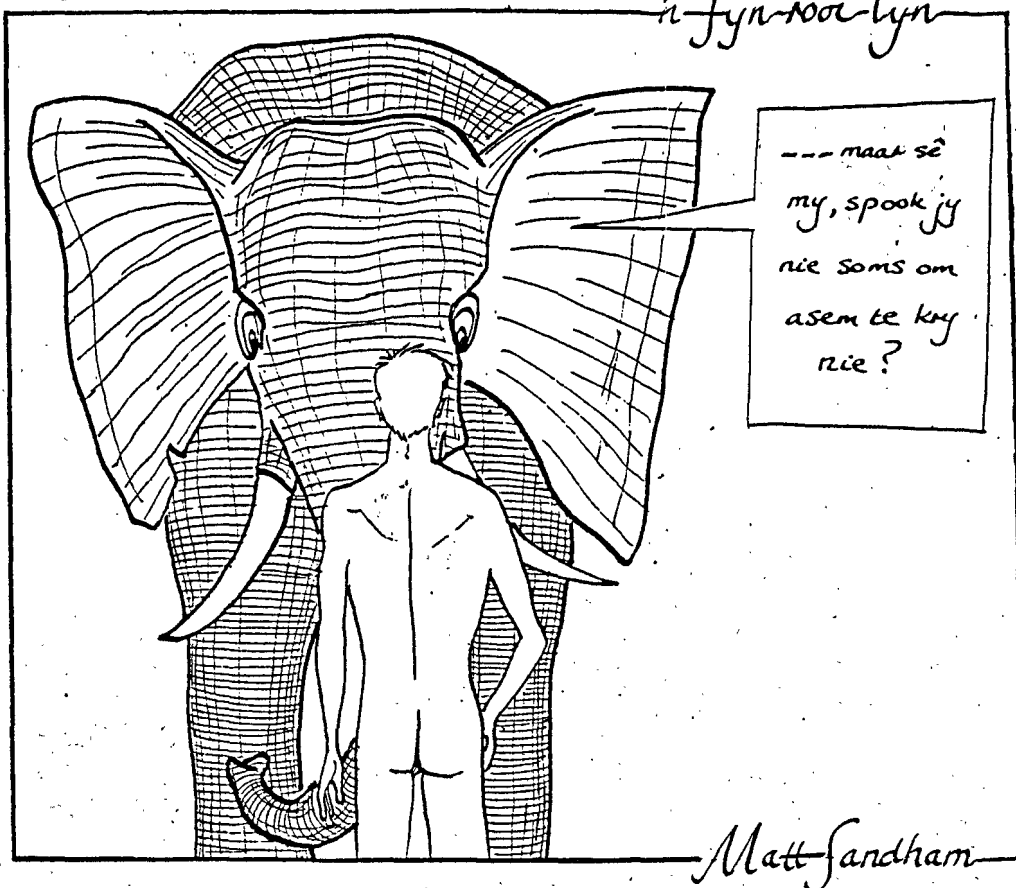 'n fyn rooi lyn
---maar sê
my, spook jy
nie soms om
asem te kry
nie?
Matt Sandham